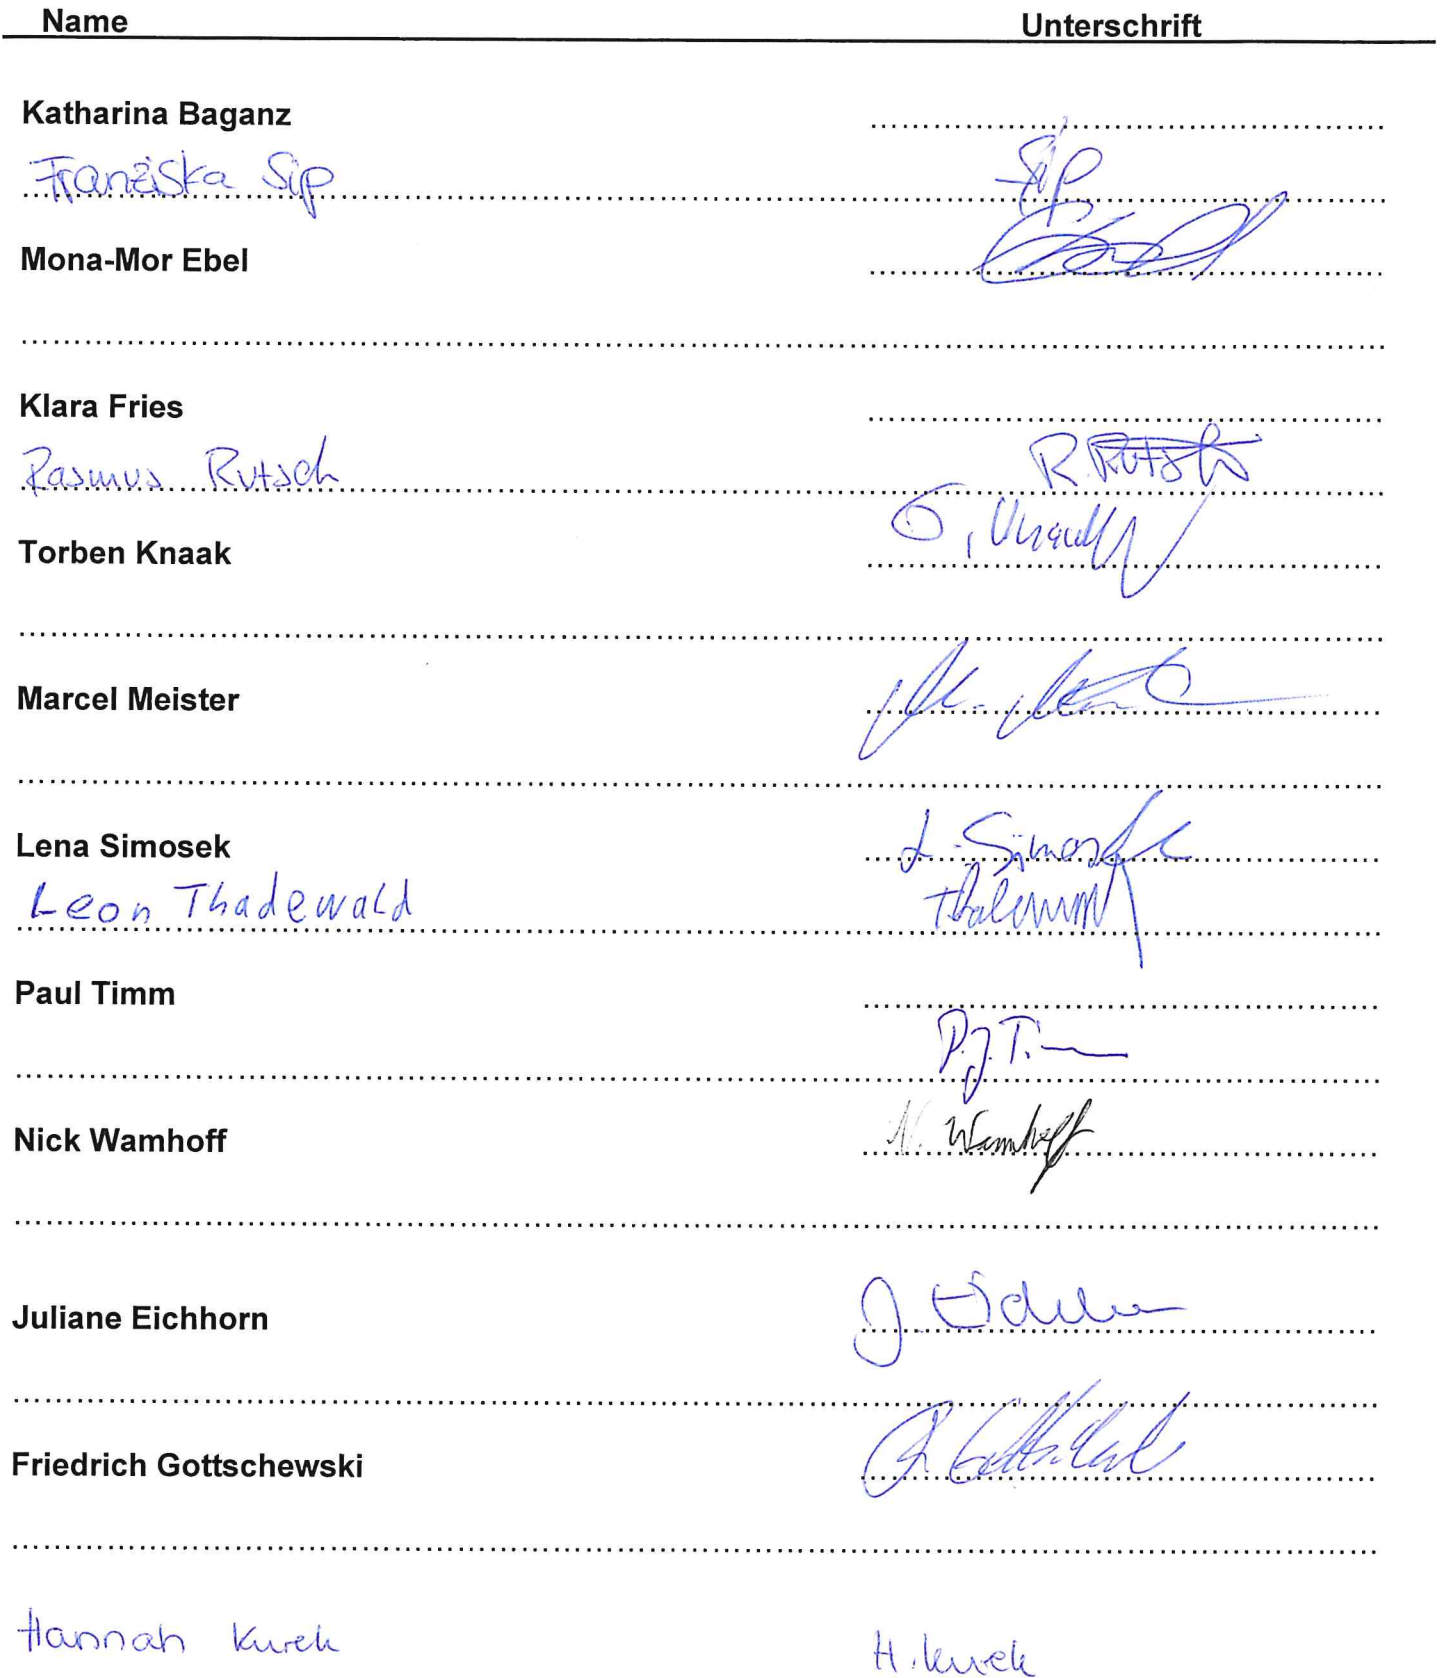 Name Unterschrift
Katharina Baganz
Franziska Sip Sip
Mona-Mor Ebel
Klara Fries
Rasmus Rutsch R. Rutsch
Torben Knaak
Marcel Meister
Lena Simosek L. Simosek
Leon Thadewald
Paul Timm
P.J.T.
Nick Wamhoff N. Wamhoff
Juliane Eichhorn J.
Friedrich Gottschewski
Hannah Kurek H. Kurek